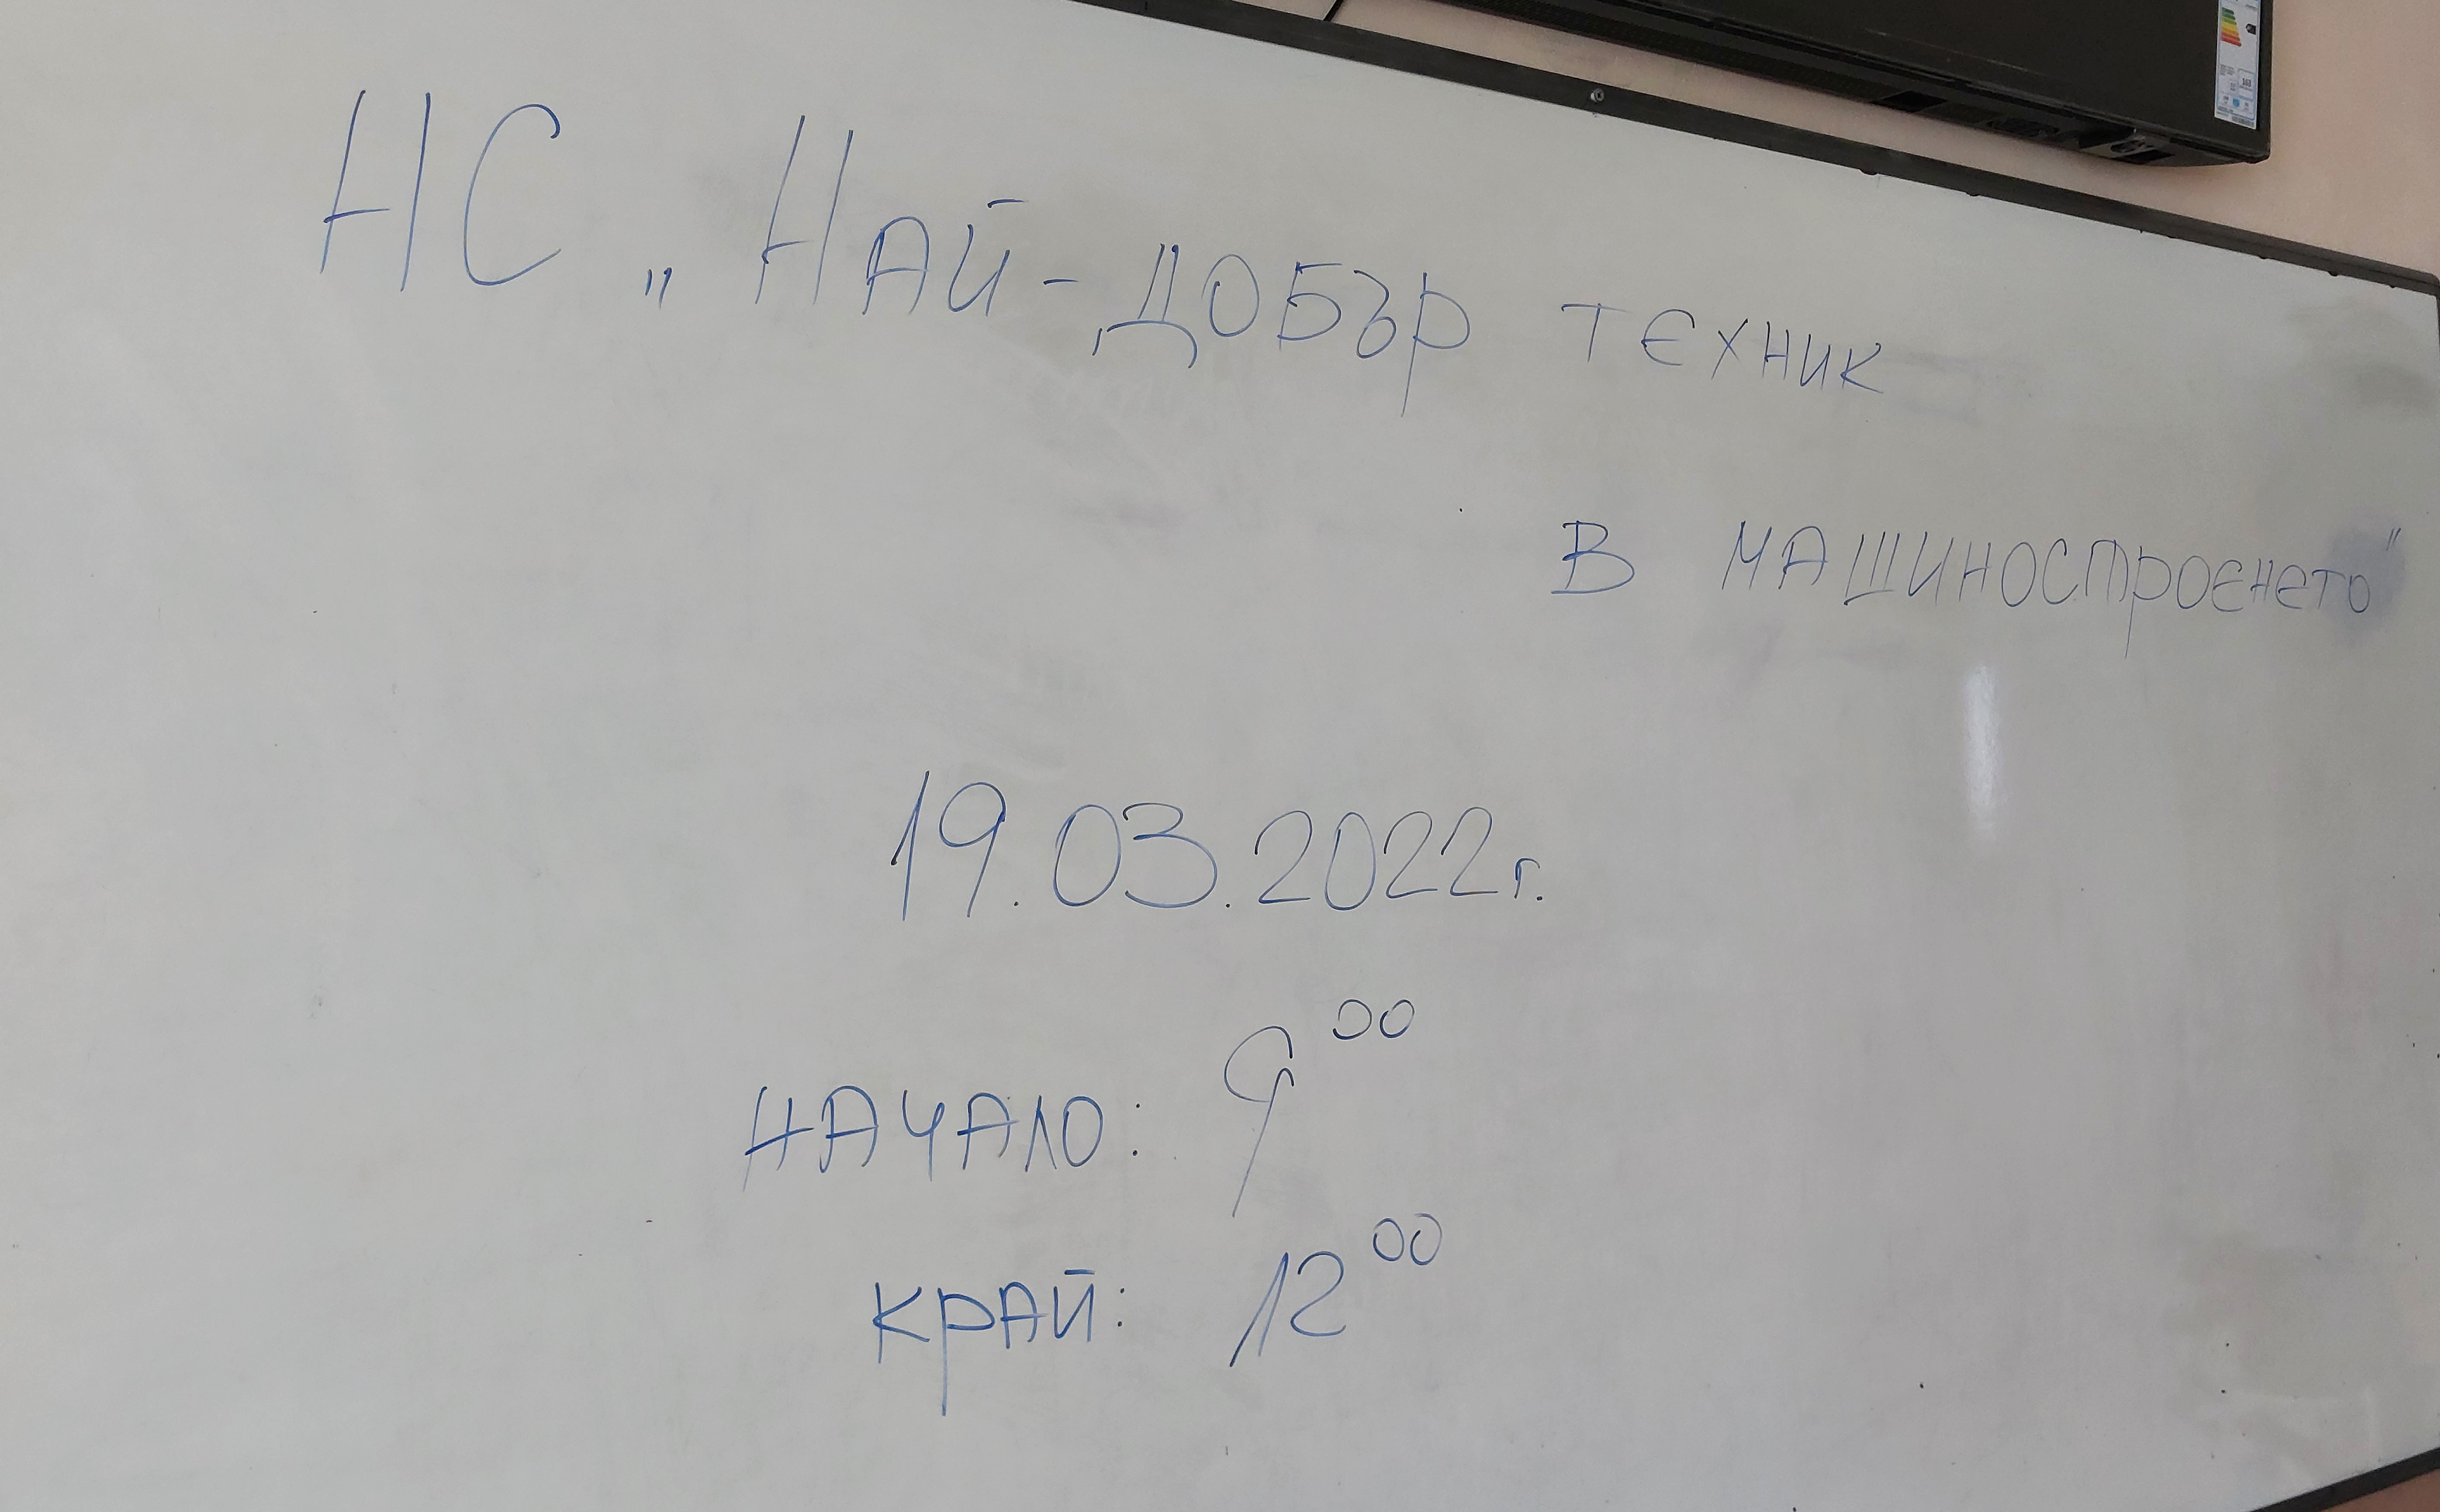 НС „Най-добър техник
в машиностроенето"
19.03.2022г.
начало: 9⁰⁰
край: 12⁰⁰